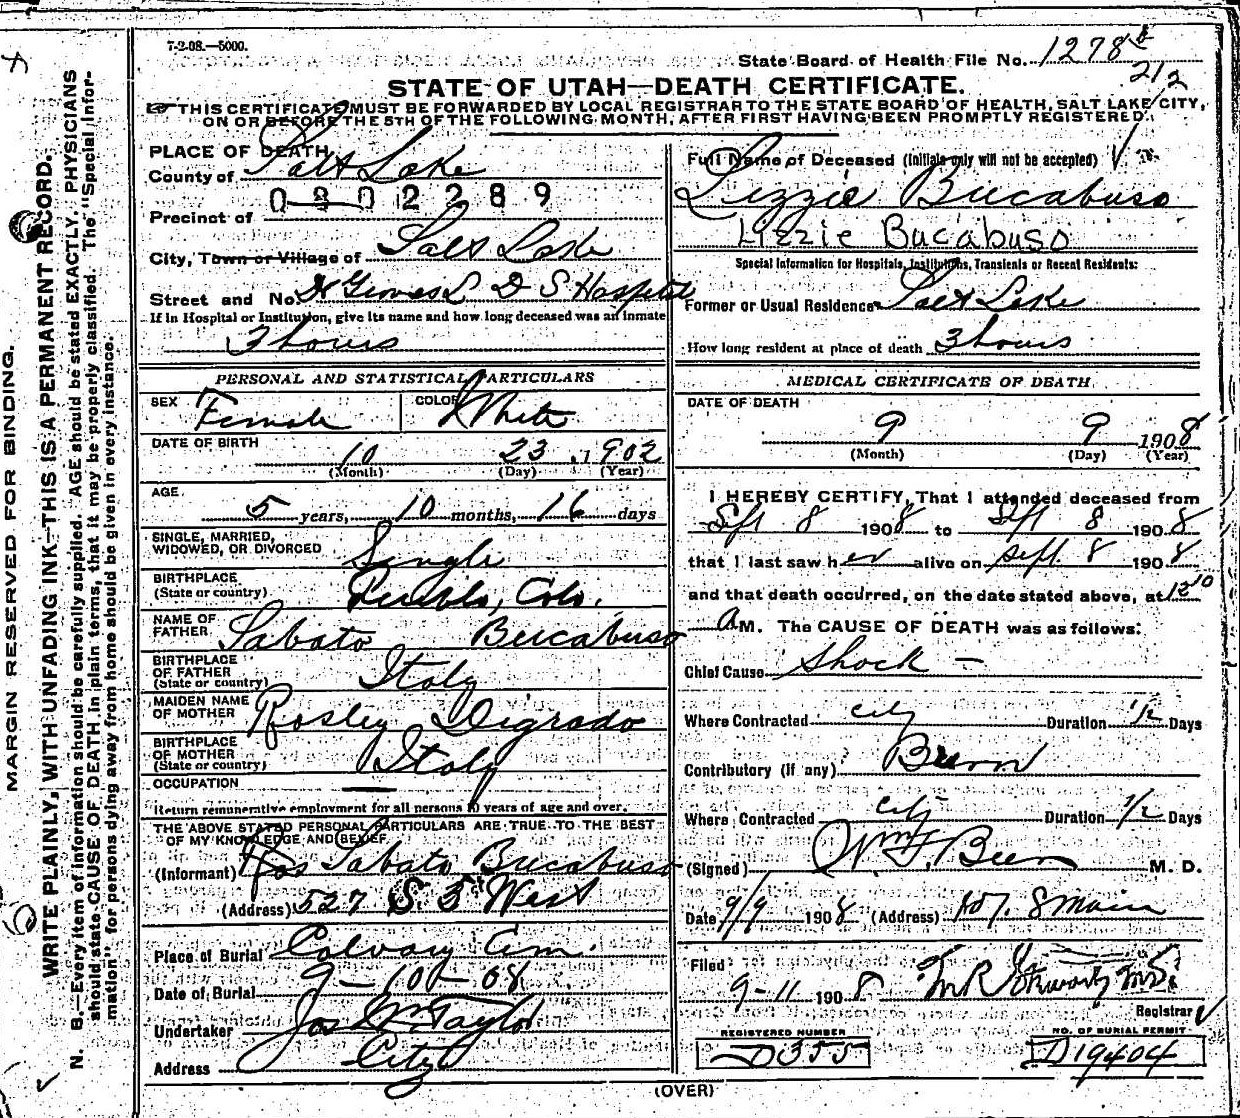 7-2-08.—5000.
State Board of Health File No. 1278
212
STATE OF UTAH—DEATH CERTIFICATE.
THIS CERTIFICATE MUST BE FORWARDED BY LOCAL REGISTRAR TO THE STATE BOARD OF HEALTH, SALT LAKE CITY,
ON OR BEFORE THE 5TH OF THE FOLLOWING MONTH, AFTER FIRST HAVING BEEN PROMPTLY REGISTERED.
MARGIN RESERVED FOR BINDING.
WRITE PLAINLY, WITH UNFADING INK—THIS IS A PERMANENT RECORD.
N. B.—Every item of information should be carefully supplied. AGE should be stated EXACTLY. PHYSICIANS
should state CAUSE OF DEATH in plain terms, that it may be properly classified. The "Special Infor-
mation" for persons dying away from home should be given in every instance.
PLACE OF DEATH
County of Salt Lake
0802289
Precinct of
City, Town or Village of Salt Lake
Street and No. Groves L D S Hospital
If in Hospital or Institution, give its name and how long deceased was an inmate
3 hours
Full Name of Deceased (Initials only will not be accepted)
Lizzie Bucabuso
Lizzie Bucabuso
Special Information for Hospitals, Institutions, Transients or Recent Residents:
Former or Usual Residence Salt Lake
How long resident at place of death 3 hours
PERSONAL AND STATISTICAL PARTICULARS
SEX Female COLOR White
DATE OF BIRTH
10 23, 1902
(Month) (Day) (Year)
AGE
5 years, 10 months, 16 days
SINGLE, MARRIED,
WIDOWED, OR DIVORCED Single
BIRTHPLACE
(State or country) Pueblo, Colo.
NAME OF
FATHER Sabato Bucabuso
BIRTHPLACE
OF FATHER
(State or country) Italy
MAIDEN NAME
OF MOTHER Rosley Digrado
BIRTHPLACE
OF MOTHER
(State or country) Italy
OCCUPATION —
Return remunerative employment for all persons 10 years of age and over.
THE ABOVE STATED PERSONAL PARTICULARS ARE TRUE TO THE BEST
OF MY KNOWLEDGE AND BELIEF
(Informant) Sabato Bucabuso
(Address) 527 S. 5th West
Place of Burial Calvary Cem.
Date of Burial 9-10-08
Undertaker Jos Wm Taylor
Address City
MEDICAL CERTIFICATE OF DEATH
DATE OF DEATH
9 9 1908
(Month) (Day) (Year)
I HEREBY CERTIFY, That I attended deceased from
Sept 8 1908 to Sept 8 1908
that I last saw her alive on Sept. 8 1908
and that death occurred, on the date stated above, at 12 10
A M. The CAUSE OF DEATH was as follows:
Chief Cause Shock —
Where Contracted City Duration 1/2 Days
Contributory (if any) Burn
Where Contracted City Duration 1/2 Days
(Signed) Wm F. Beer M. D.
Date 9/9 1908 (Address) 107. S Main
Filed
9-11 1908 M R Stewart M.D.
Registrar
REGISTERED NUMBER
D355
NO. OF BURIAL PERMIT
D19404
(OVER)